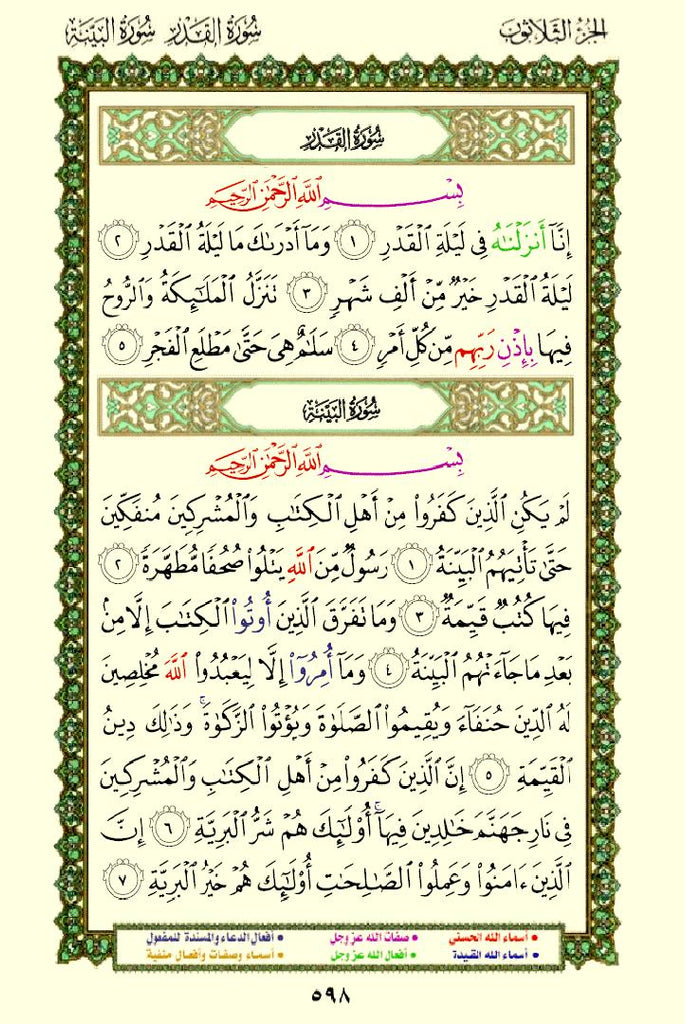 الجزء الثلاثون سورة القدر سورة البينة
سورة القدر
بِسْمِ اللَّهِ الرَّحْمَٰنِ الرَّحِيمِ
إِنَّآ أَنزَلْنَٰهُ فِى لَيْلَةِ الْقَدْرِ ١ وَمَآ أَدْرَىٰكَ مَا لَيْلَةُ الْقَدْرِ ٢
لَيْلَةُ الْقَدْرِ خَيْرٌ مِّنْ أَلْفِ شَهْرٍ ٣ تَنَزَّلُ الْمَلَٰٓئِكَةُ وَالرُّوحُ
فِيهَا بِإِذْنِ رَبِّهِم مِّن كُلِّ أَمْرٍ ٤ سَلَٰمٌ هِىَ حَتَّىٰ مَطْلَعِ الْفَجْرِ ٥
سورة البينة
بِسْمِ اللَّهِ الرَّحْمَٰنِ الرَّحِيمِ
لَمْ يَكُنِ الَّذِينَ كَفَرُوا۟ مِنْ أَهْلِ الْكِتَٰبِ وَالْمُشْرِكِينَ مُنفَكِّينَ
حَتَّىٰ تَأْتِيَهُمُ الْبَيِّنَةُ ١ رَسُولٌ مِّنَ اللَّهِ يَتْلُوا۟ صُحُفًا مُّطَهَّرَةً ٢
فِيهَا كُتُبٌ قَيِّمَةٌ ٣ وَمَا تَفَرَّقَ الَّذِينَ أُوتُوا۟ الْكِتَٰبَ إِلَّا مِنۢ
بَعْدِ مَا جَآءَتْهُمُ الْبَيِّنَةُ ٤ وَمَآ أُمِرُوٓا۟ إِلَّا لِيَعْبُدُوا۟ اللَّهَ مُخْلِصِينَ
لَهُ الدِّينَ حُنَفَآءَ وَيُقِيمُوا۟ الصَّلَوٰةَ وَيُؤْتُوا۟ الزَّكَوٰةَ ۚ وَذَٰلِكَ دِينُ
الْقَيِّمَةِ ٥ إِنَّ الَّذِينَ كَفَرُوا۟ مِنْ أَهْلِ الْكِتَٰبِ وَالْمُشْرِكِينَ
فِى نَارِ جَهَنَّمَ خَٰلِدِينَ فِيهَآ ۚ أُو۟لَٰٓئِكَ هُمْ شَرُّ الْبَرِيَّةِ ٦ إِنَّ
الَّذِينَ ءَامَنُوا۟ وَعَمِلُوا۟ الصَّٰلِحَٰتِ أُو۟لَٰٓئِكَ هُمْ خَيْرُ الْبَرِيَّةِ ٧
• أسماء الله الحسنى • صفات الله عز وجل • أفعال الدعاء والمسندة للمفعول
• أسماء الله المقيدة • أفعال الله عز وجل • أسماء وصفات وأفعال منفية
٥٩٨